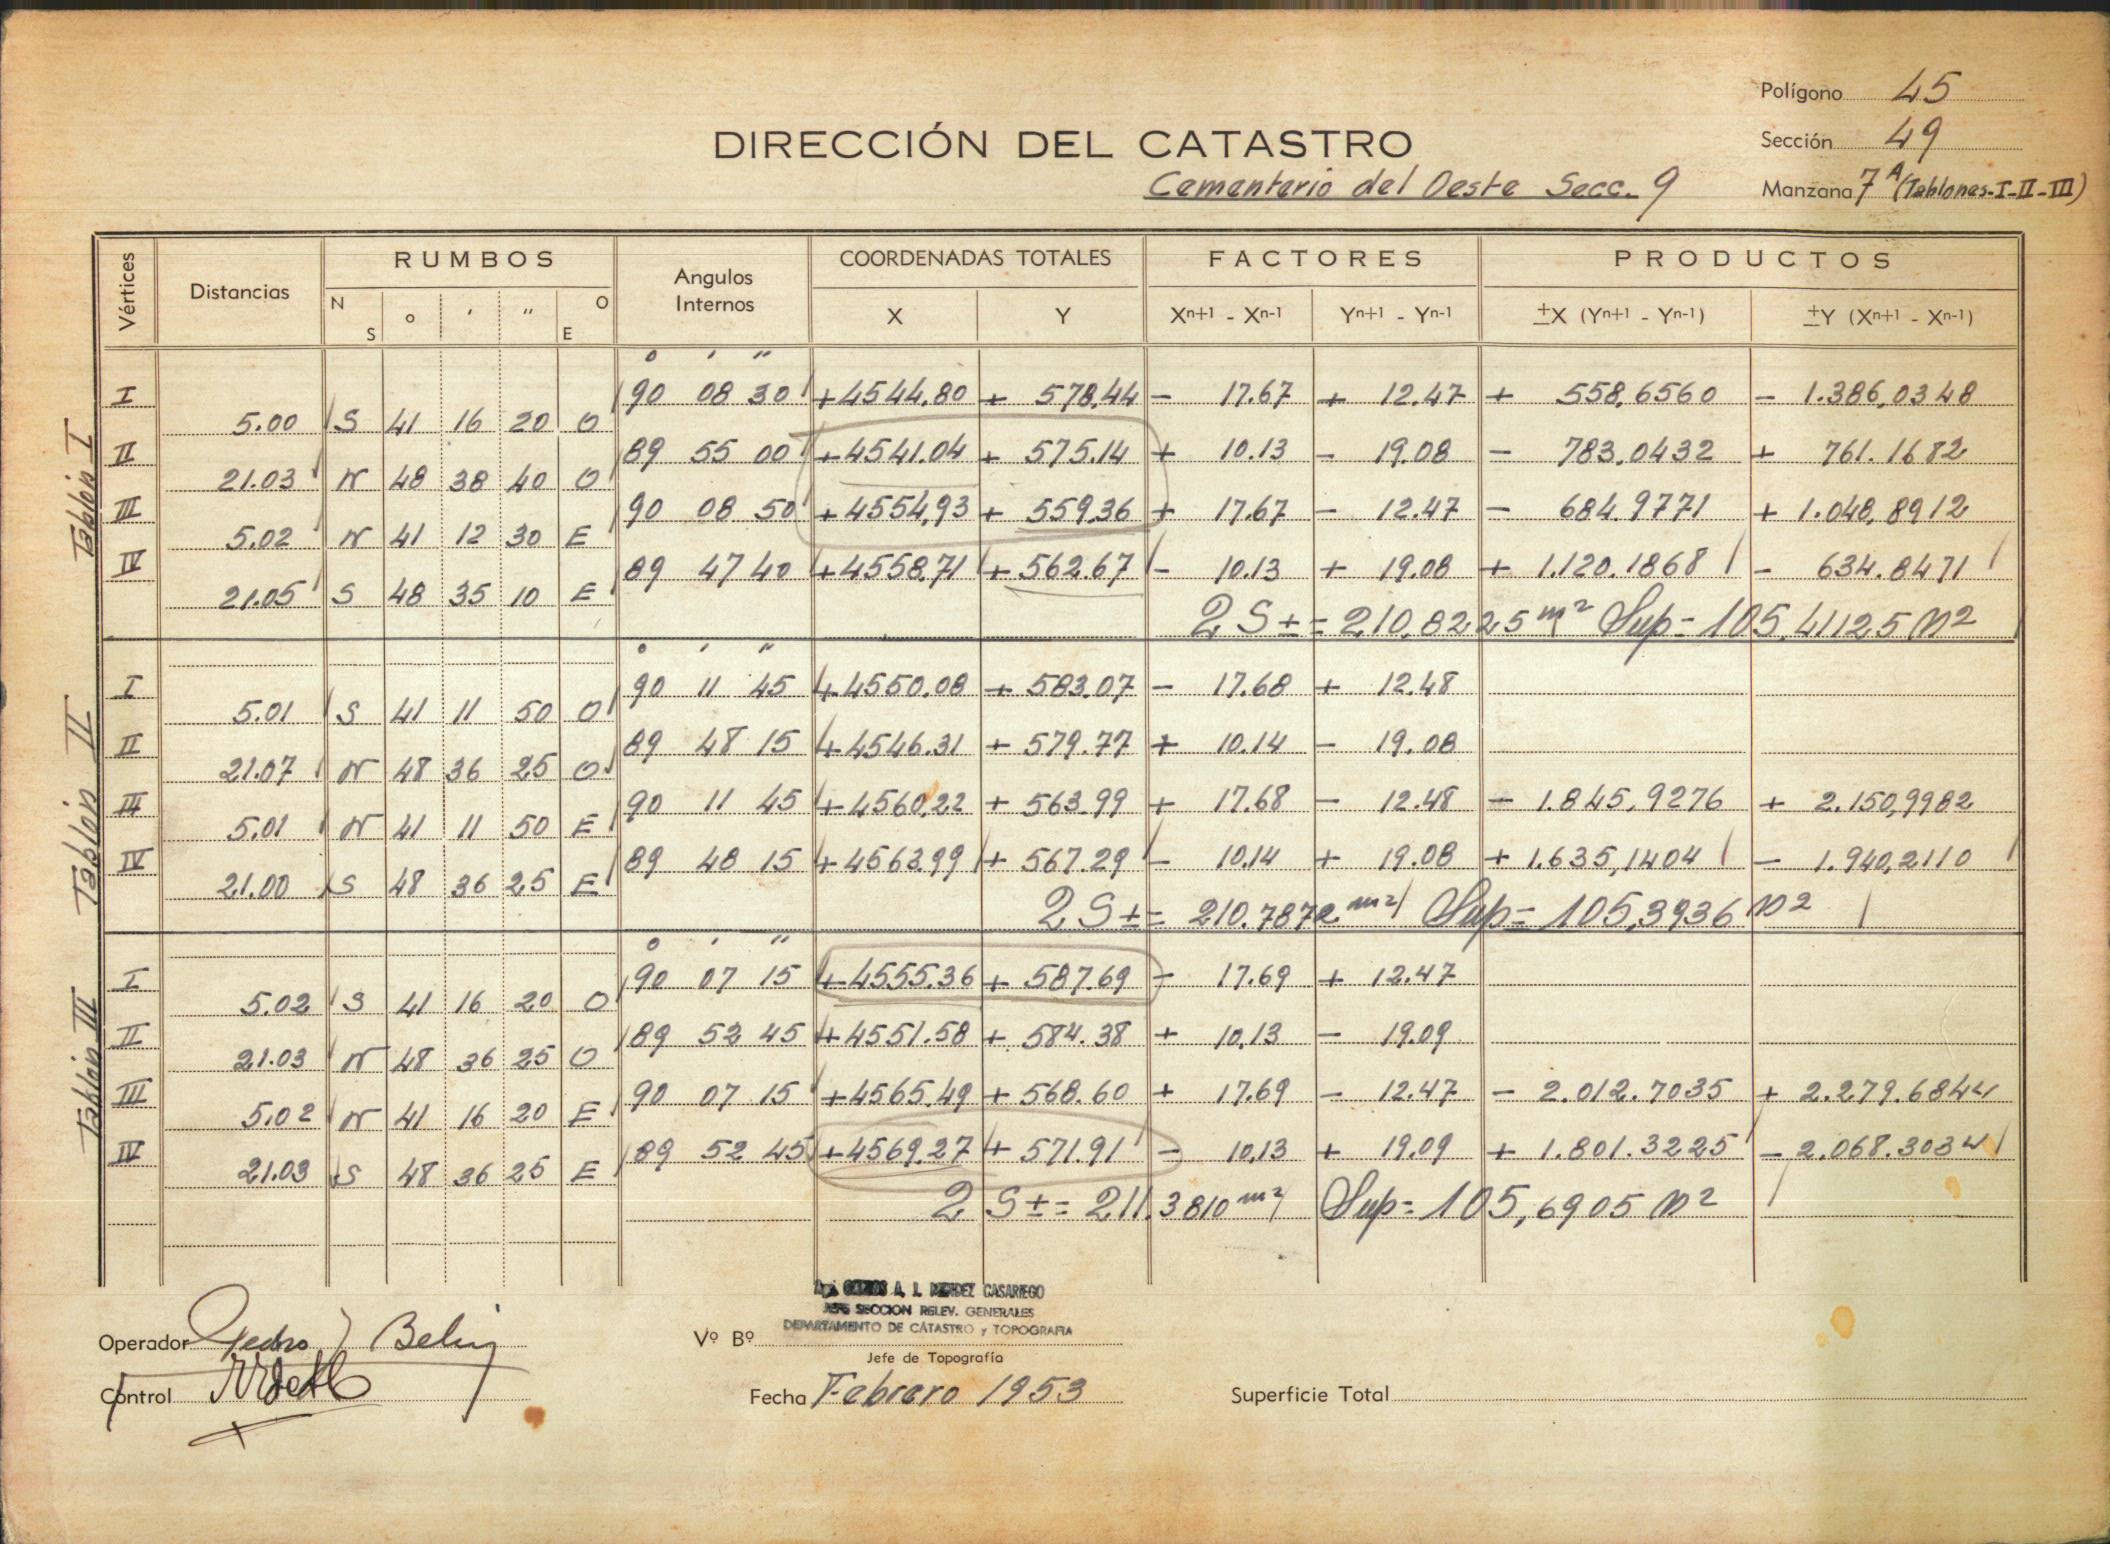 Polígono 45
DIRECCIÓN DEL CATASTRO
Sección 49
Cementerio del Oeste Secc. 9
Manzana 7 A (Tablones-I-II-III)
Vértices Distancias RUMBOS Angulos Internos COORDENADAS TOTALES FACTORES PRODUCTOS
N S ° ' " O E X Y Xn+1 - Xn-1 Yn+1 - Yn-1 ±X (Yn+1 - Yn-1) ±Y (Xn+1 - Xn-1)
Tablón I
° ' "
I 90 08 30 +4544.80 + 578.44 - 17.67 + 12.47 + 558,6560 - 1.386,0348
5.00 S 41 16 20 O
II 89 55 00 +4541.04 + 575.14 + 10.13 - 19.08 - 783.0432 + 761.1682
21.03 N 48 38 40 O
III 90 08 50 +4554,93 + 559.36 + 17.67 - 12.47 - 684.9771 + 1.048,8912
5.02 N 41 12 30 E
IV 89 47 40 +4558.71 + 562.67 - 10.13 + 19.08 + 1.120.1868 - 634.8471
21.05 S 48 35 10 E
2 S ± = 210.8225 m² Sup = 105,41125 m²
Tablón II
° ' "
I 90 11 45 +4550.08 + 583.07 - 17.68 + 12.48
5.01 S 41 11 50 O
II 89 48 15 +4546.31 + 579.77 + 10.14 - 19.08
21.07 N 48 36 25 O
III 90 11 45 +4560,22 + 563.99 + 17.68 - 12.48 - 1.845,9276 + 2.150,9982
5.01 N 41 11 50 E
IV 89 48 15 +4563.99 + 567.29 - 10.14 + 19.08 + 1.635,1404 - 1.940,2110
21.00 S 48 36 25 E
2 S ± = 210.7872 m² Sup = 105,3936 m²
Tablón III
° ' "
I 90 07 15 +4555.36 + 587.69 - 17.69 + 12.47
5.02 S 41 16 20 O
II 89 52 45 +4551.58 + 584.38 + 10,13 - 19.09
21.03 N 48 36 25 O
III 90 07 15 +4565.49 + 568.60 + 17.69 - 12.47 - 2.012.7035 + 2.279.6844
5.02 N 41 16 20 E
IV 89 52 45 +4569.27 + 571.91 - 10,13 + 19.09 + 1.801.3225 - 2.068.3034
21.03 S 48 36 25 E
2 S ± = 211.3810 m² Sup = 105,6905 m²
A. J. MENDEZ CASARIEGO
JEFE SECCION RELEV. GENERALES
DEPARTAMENTO DE CATASTRO y TOPOGRAFIA
Operador Pedro
Vº Bº
Jefe de Topografía
Control
Fecha Febrero 1953
Superficie Total